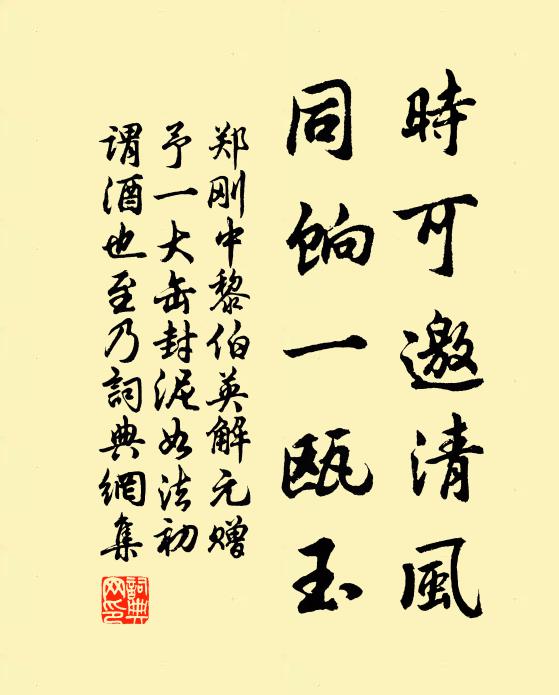 時可邀清風
同饷一瓯玉
郑刚中黎伯英解元赠
予一大缶封泥如法初
谓酒也至乃詞典網集
詞典
网印